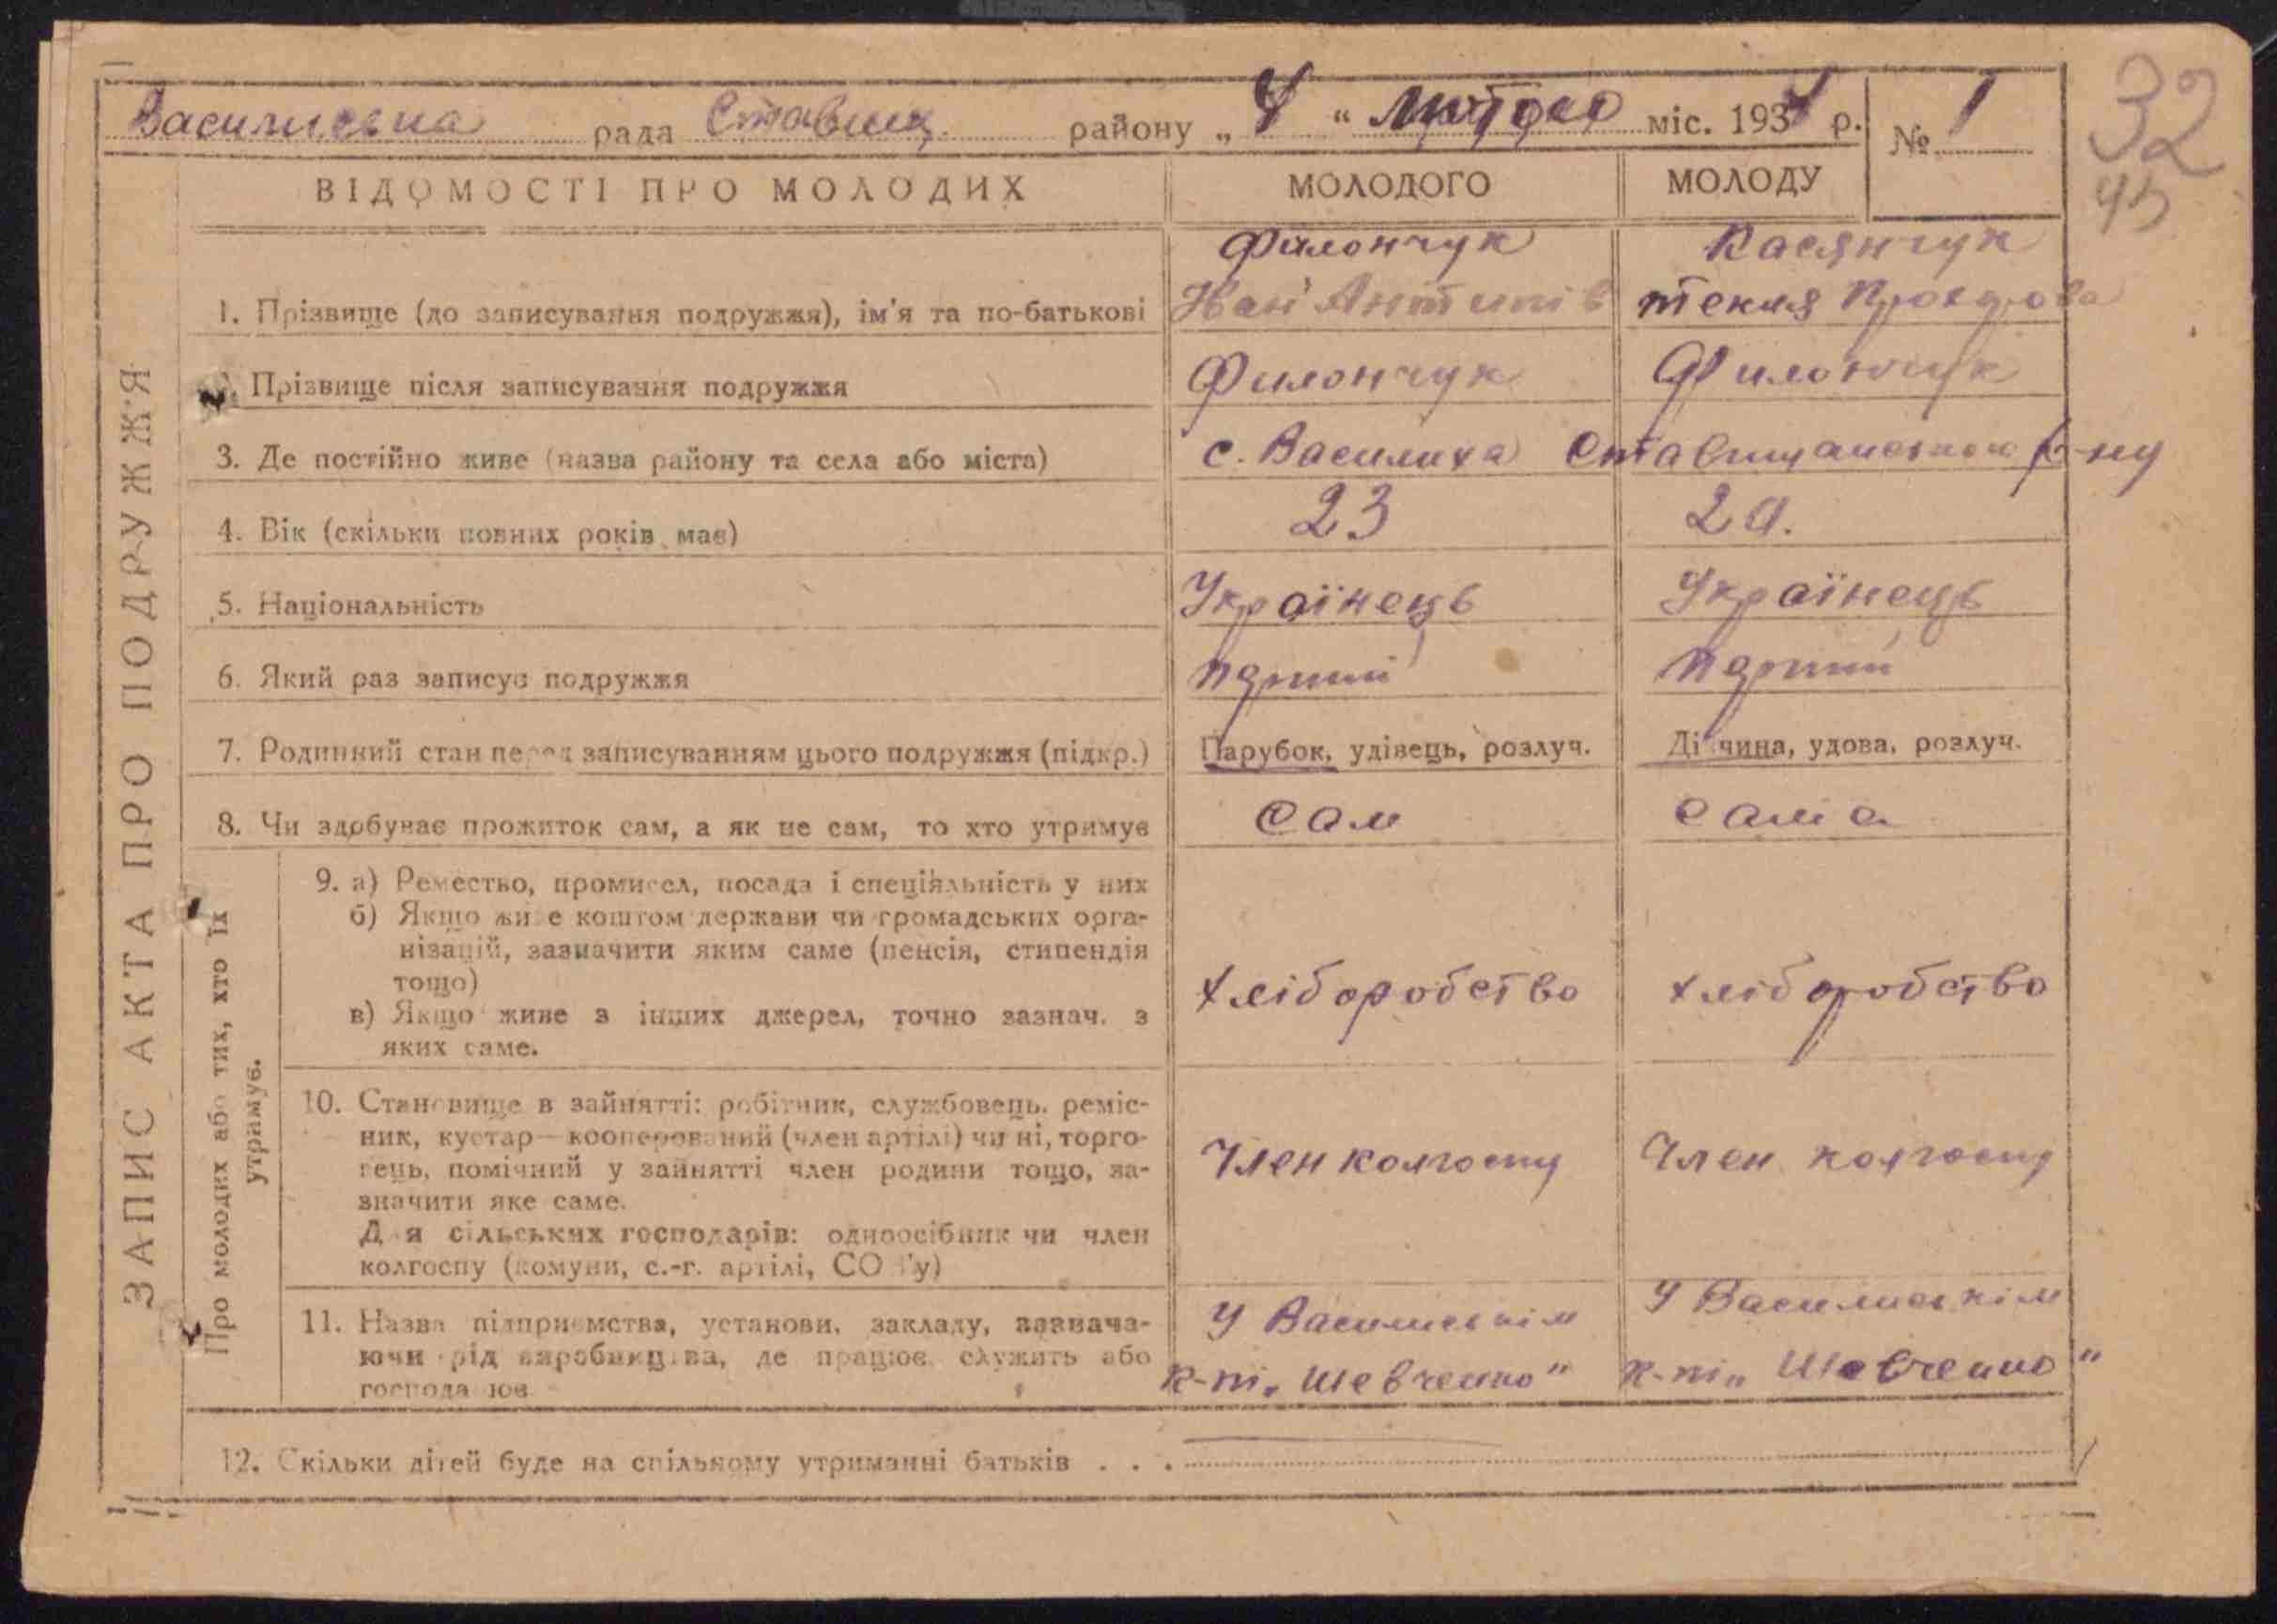 Василиська рада Ставищ. району „ 4 “ лютого міс. 1934 р. № 1
32
45
ВІДОМОСТІ ПРО МОЛОДИХ МОЛОДОГО МОЛОДУ
Филончук Касянчук
1. Прізвище (до записування подружжя), ім'я та по-батькові Іван Антипів текля
2. Прізвище після записування подружжя Филончук Филончук
3. Де постійно живе (назва району та села або міста) с. Василиха Ставищанського р-ну
4. Вік (скільки повних років має) 23
5. Національність Українець Українець
6. Який раз записує подружжя
7. Родинний стан перед записуванням цього подружжя (підкр.) Парубок, удівець, розлуч. Дівчина, удова, розлуч.
8. Чи здобуває прожиток сам, а як не сам, то хто утримує сам сама
9. а) Ремество, промисел, посада і спеціяльність у них
б) Якщо живе коштом держави чи громадських орга-
нізацій, зазначити яким саме (пенсія, стипендія
тощо) хліборобство хліборобство
в) Якщо живе з інших джерел, точно зазнач. з
яких саме.
10. Становище в зайнятті: робітник, службовець, реміс-
ник, кустар—кооперований (член артілі) чи ні, торго-
вець, помічний у зайнятті член родини тощо, за- Член колгоспу Член колгоспу
значити яке саме.
Для сільських господарів: одноосібник чи член
колгоспу (комуни, с.-г. артілі, СОЗ'у)
11. Назва підприємства, установи, закладу, зазнача- У Василиськім У Василиськім
ючи рід виробництва, де працює, служить або к-пі „Шевченко“ к-пі „Шевченко“
господарює
12. Скільки дітей буде на спільному утриманні батьків . . .
ЗАПИС АКТА ПРО ПОДРУЖЖЯ
Про молодих або тих, хто їх
утримує.